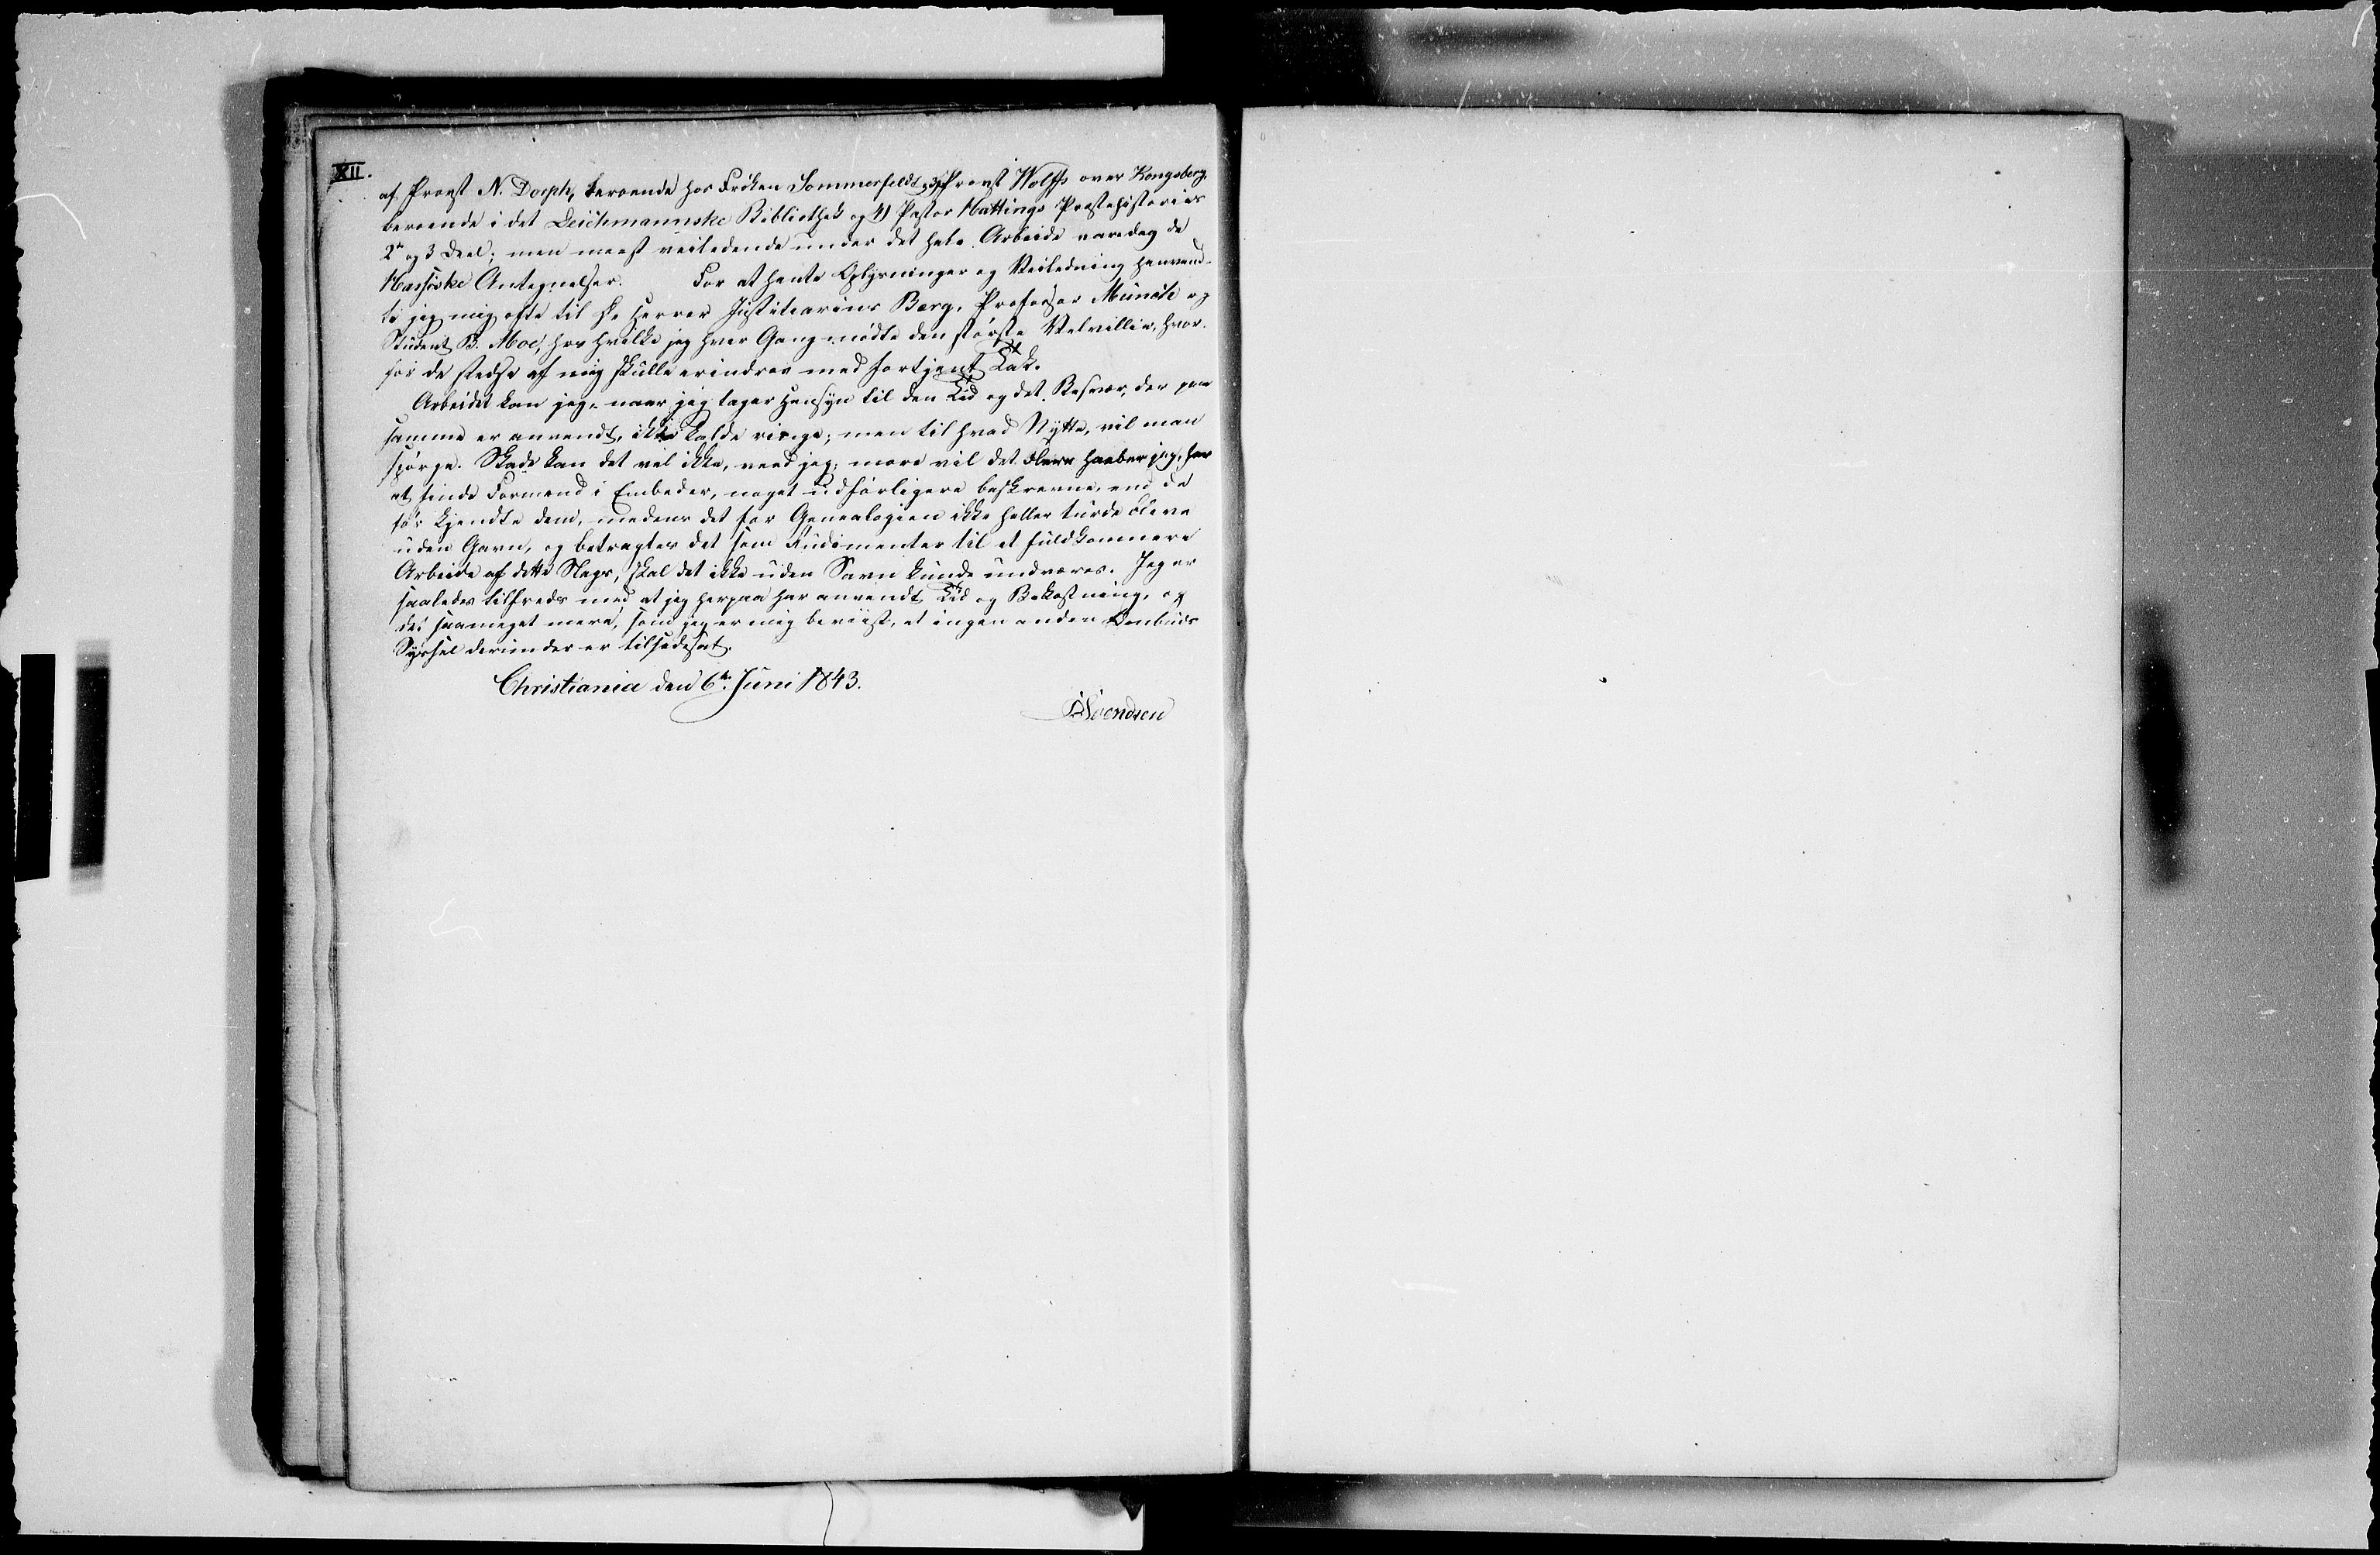 XII.
af Provst N. Dorph, beroende hos Fröken Sommerfeldt, 3) Provst Wolffs over Kongsberg,
beroende i det Deichmannske Bibliothek og 4) Pastor Hattings Præstehistories
2n og 3 Deel; men meest veiledende under det hele Arbeide vare dog de
Hassöske Antegnelser. For at hente Oplysninger og Veiledning henvend-
te jeg mig ofte til de Herrer Justitiarius Berg, Professor Münch og
Student B. Moe, hos hvilke jeg hver Gang mødte den største Velvillie, hvor-
for de stedse af mig skulle erindres med fortjent Tak.
Arbeidet kan jeg, naar jeg tager Hensyn til den Tid og det Besvær, der paa
samme er anvendt, ikke kalde ringe; men til hvad Nytte, vil man
spørge. Skade kan det vel ikke, veed jeg; more vil det Flere haaber jeg, her
at finde Formænd i Embeder, noget udførligere beskrevne, end de
før kjendte dem, medens det for Genealogien ikke heller turde blive
uden Gavn, og betragtes det som Rudimenter til et fuldkomnere
Arbeide af dette Slags, skal det ikke uden Savn kunde undværes. Jeg er
saaledes tilfreds med, at jeg herpaa har anvendt Tid og Bekostning, og
det saameget mere, som jeg er mig beviist, at ingen anden Ombuds
Syssel derunder er tilsidesat.
Christiania den 6te Juni 1843.